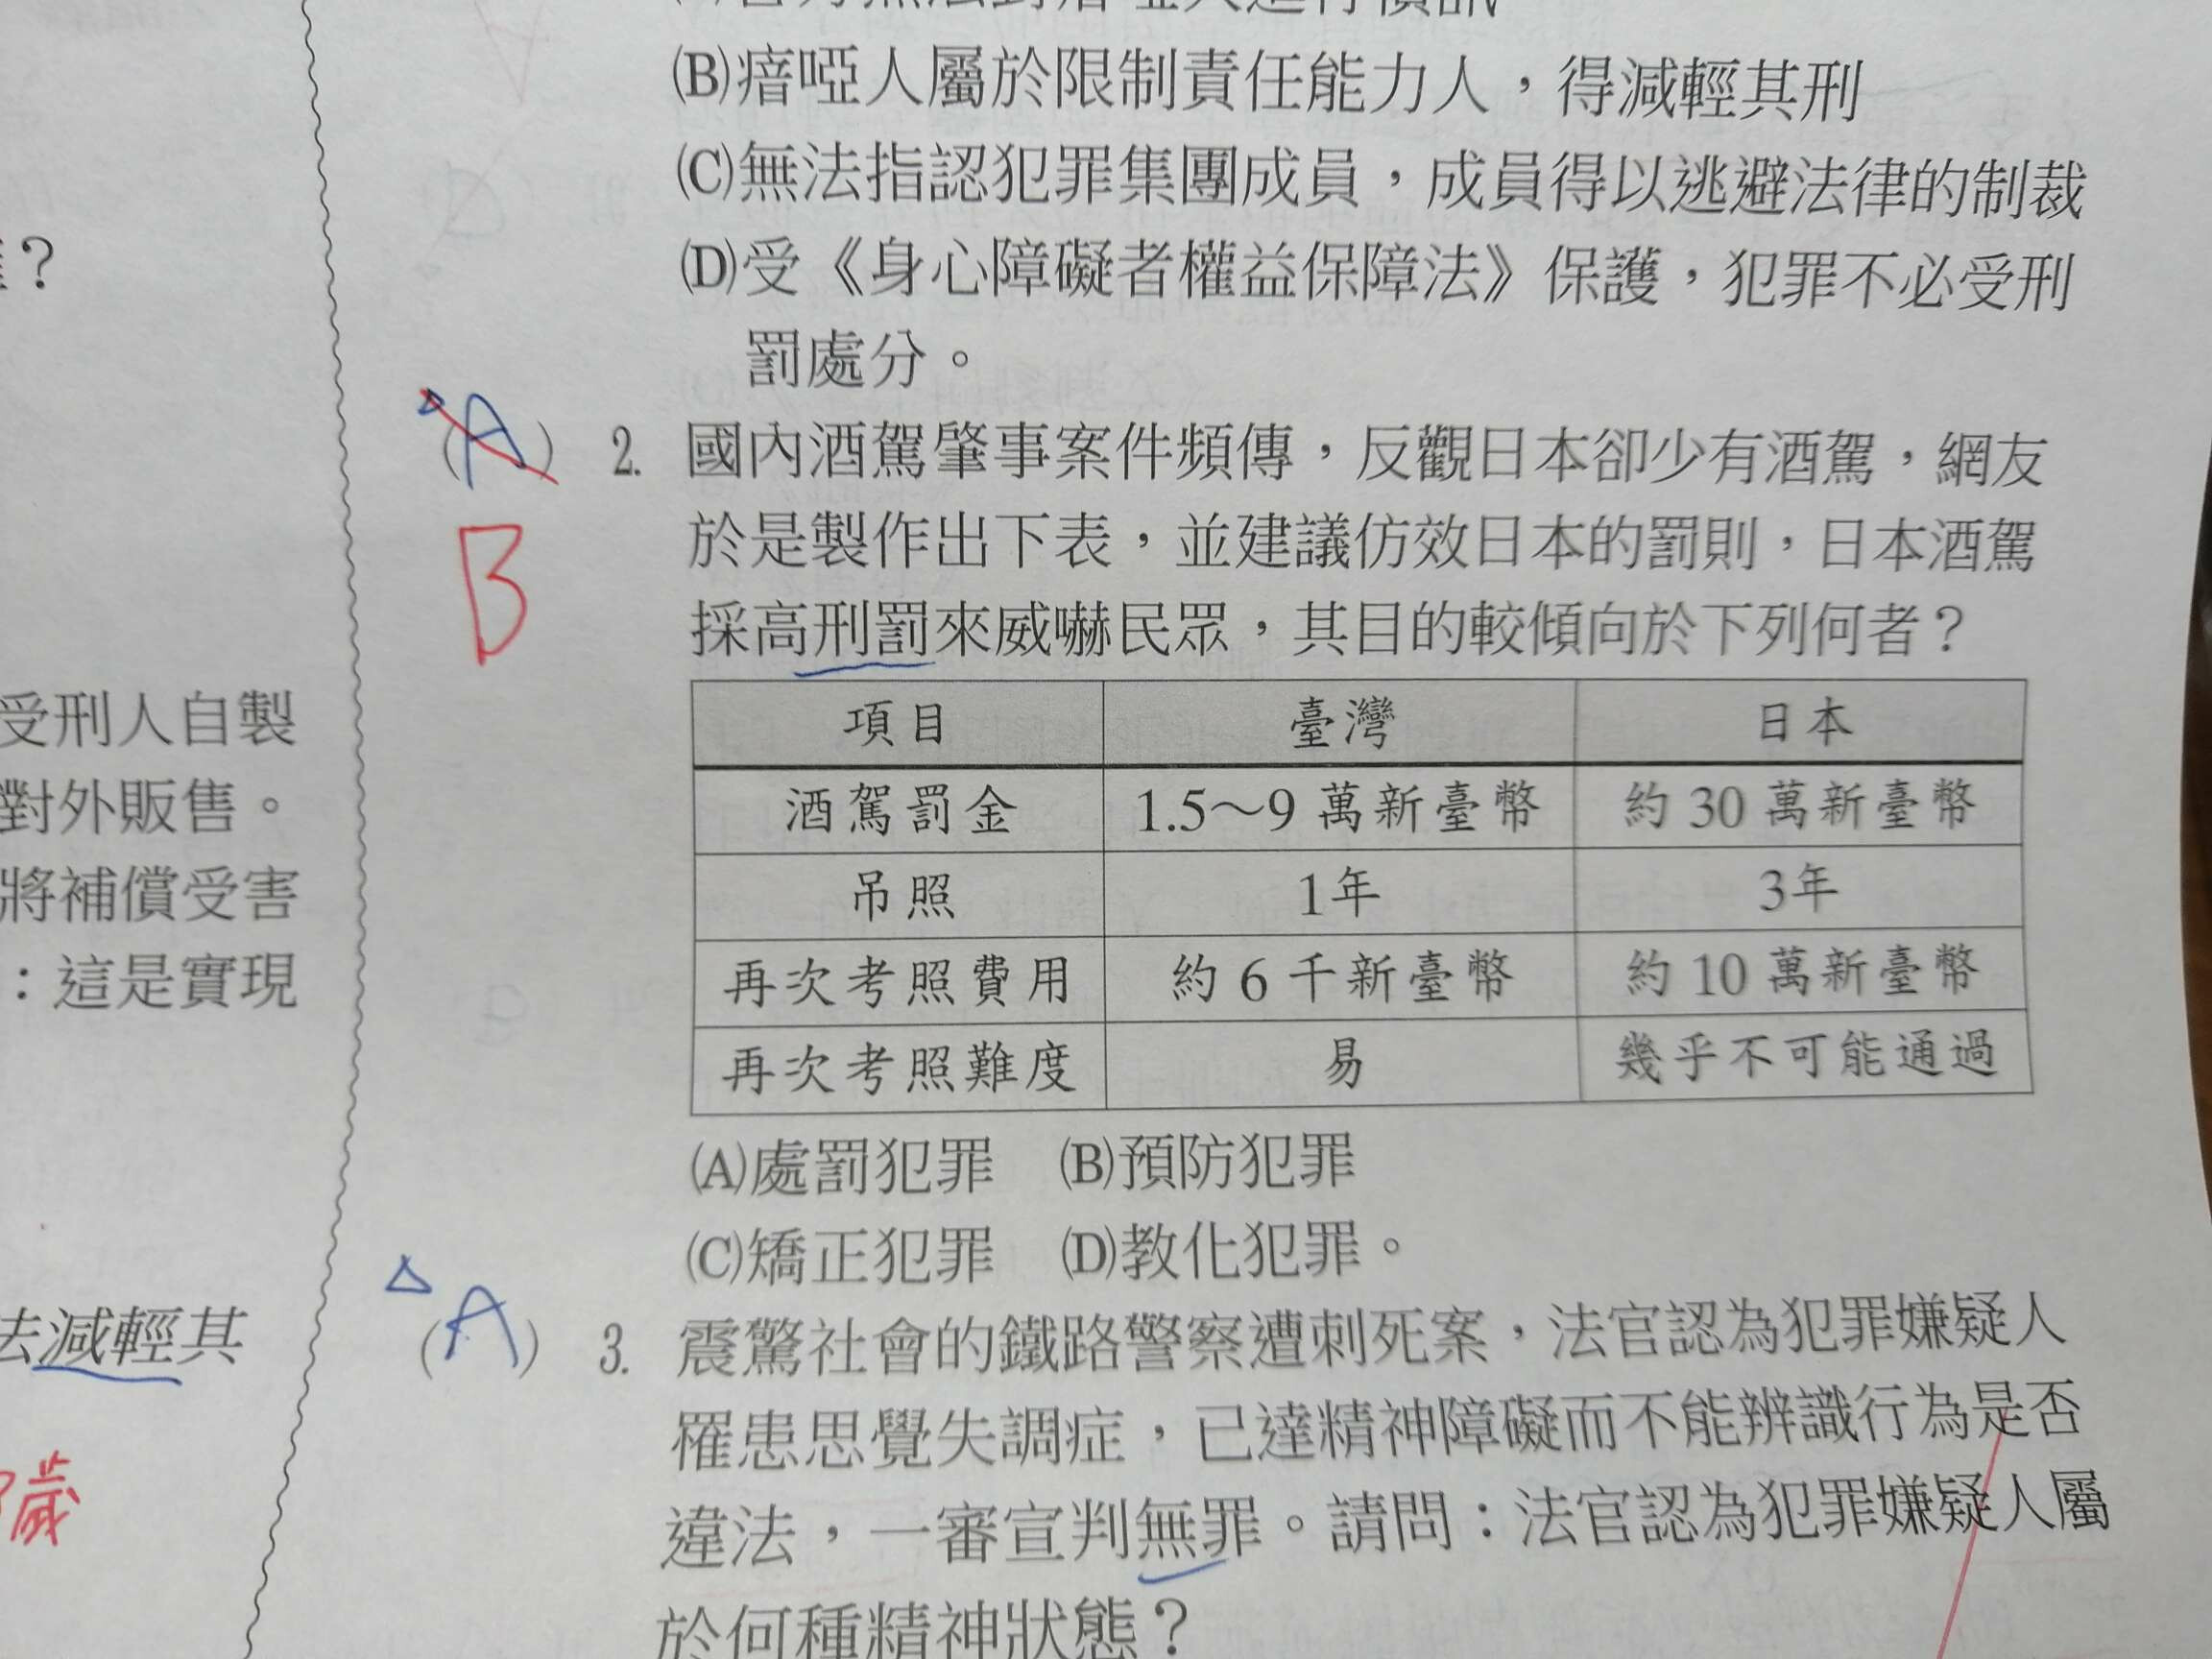 (B)瘖啞人屬於限制責任能力人，得減輕其刑
(C)無法指認犯罪集團成員，成員得以逃避法律的制裁
(D)受《身心障礙者權益保障法》保護，犯罪不必受刑
罰處分。
？
受刑人自製
對外販售。
將補償受害
：這是實現
法減輕其
歲
(A) 2. 國內酒駕肇事案件頻傳，反觀日本卻少有酒駕，網友
B
於是製作出下表，並建議仿效日本的罰則，日本酒駕
採高刑罰來威嚇民眾，其目的較傾向於下列何者？
項目 臺灣 日本
酒駕罰金 1.5～9 萬新臺幣 約 30 萬新臺幣
吊照 1年 3年
再次考照費用 約 6 千新臺幣 約 10 萬新臺幣
再次考照難度 易 幾乎不可能通過
(A)處罰犯罪 (B)預防犯罪
(C)矯正犯罪 (D)教化犯罪。
(A) 3. 震驚社會的鐵路警察遭刺死案，法官認為犯罪嫌疑人
罹患思覺失調症，已達精神障礙而不能辨識行為是否
違法，一審宣判無罪。請問：法官認為犯罪嫌疑人屬
於何種精神狀態？